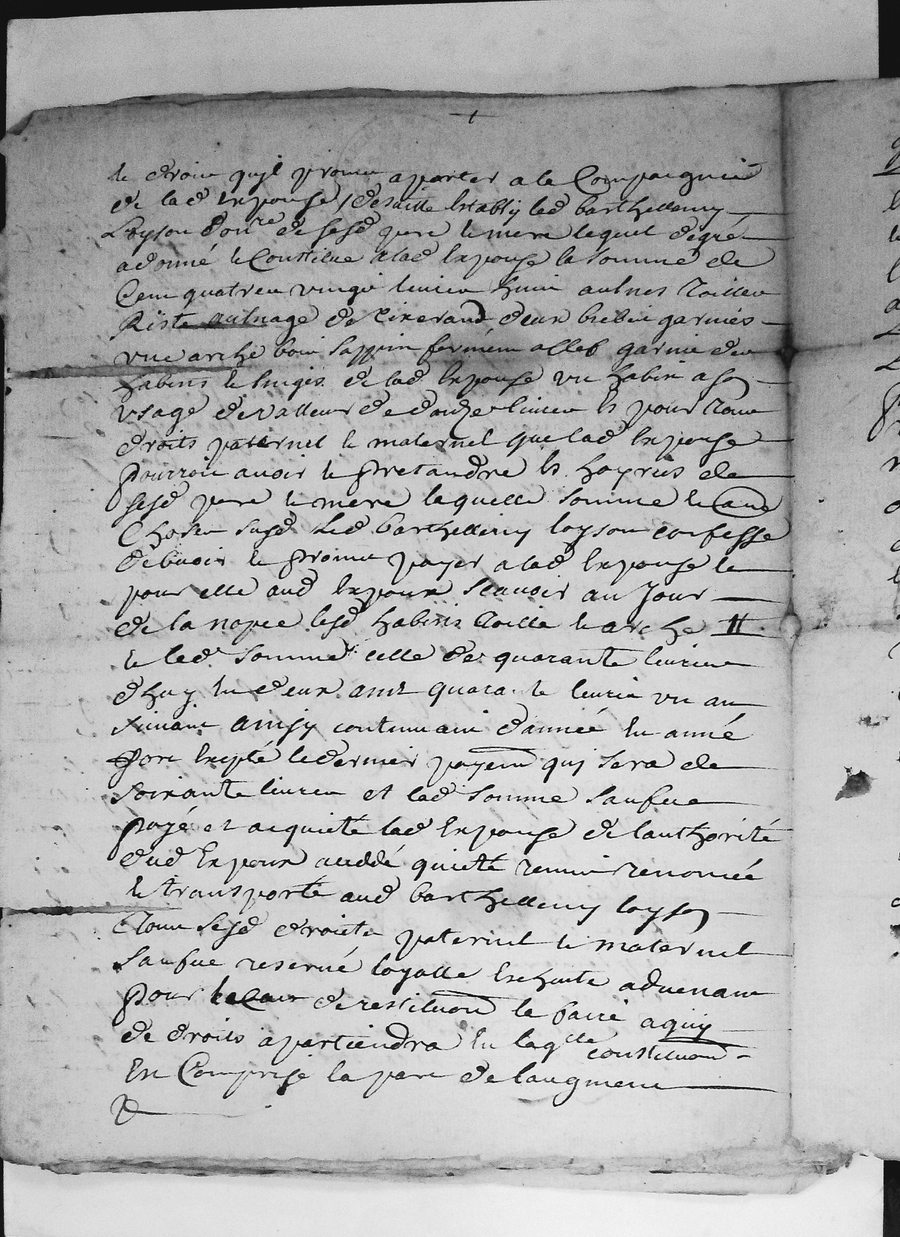 de droit quil promet aporter a la Compaignie
de lad Espouse / desuitte Estably led barthellemy
Loyson donre de sesd pere Et mere lequel de gré
a donné Et Constitue a lad Espouse la somme de
Cent quatre vingt livres huit aulnes toille
Riste aulnage de deux brebis garnies
une arche bois sappin ferment a clef garnie des
habits Et linges de lad Espouse un habit a son
usage de valleur de douze livres Es pour tous
droits paternel Et maternel que lad Espouse
pourroit avoir Et pretandre Es hoyries de
sesd pere Et mere laquelle somme Et Cause
Choses susd Led barthellemy loyson confesse
debvoir Et promet payer a lad Espouse Et
pour elle aud Espoux Scavoir au Jour
de la nopce lesd habits toille Et arche
Et lad somme celle de quarante livres
dhuy En deux ans quarante livres un an
suivant ainsy continuant d'année En année
fors Exepté le dernier payemt qui sera de
soixante livres et lad somme sauf
payé et acquitté lad Espouse de l'authorité
dud Espoux a ceddé quitté remis renoncé
Et transporté aud barthellemy loyson
tous sesd droicts paternel Et maternel
Sauf reservé loyalle Escheute advenant
pour Le Cas de restituon Et faire a qui
de droits apartiendra En laqlle constituon
En Comprise la part de laugment